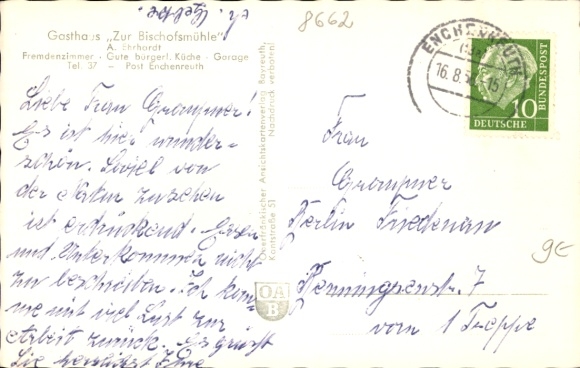 Gasthaus „Zur Bischofsmühle"
A. Ehrhardt
Fremdenzimmer - Gute bürgerl. Küche - Garage
Tel. 37 — Post Enchenreuth
Liebe Frau Grampner!
Es ist hier wunder-
schön. Soviel von
der Natur zu sehen
ist erdrückend. Essen
und Unterkommen nicht
zu beschreiben. Ich kom-
me mit viel Lust zur
Arbeit zurück. Es grüßt
Sie herzlichst Ihre
Fr.
8662
Oberfränkischer Ansichtskartenverlag Bayreuth,
Kantstraße 51
Nachdruck verboten!
OA
B
ENCHENREUTH
16.8.5
10
DEUTSCHE
BUNDESPOST
Frau
Grampner
Berlin Friedenau
7
vorn 1 Treppe
9€